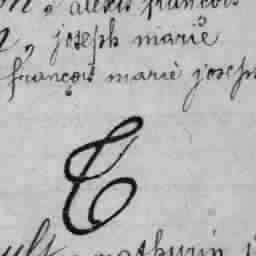 alexis francois
, joseph marie
françois marie joseph
T
mathurin